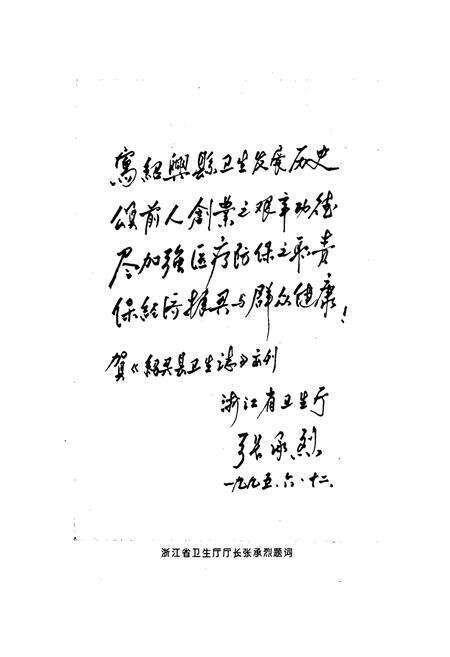 寫紹興縣卫生发展历史
頌前人創業之艰辛功德
尽加強医疗防保之职责
保經济振兴与群众健康!
贺《紹兴县卫生志》付刊
浙江省卫生厅
张承烈
一九九五.六.十二.
浙江省卫生厅厅长张承烈题词